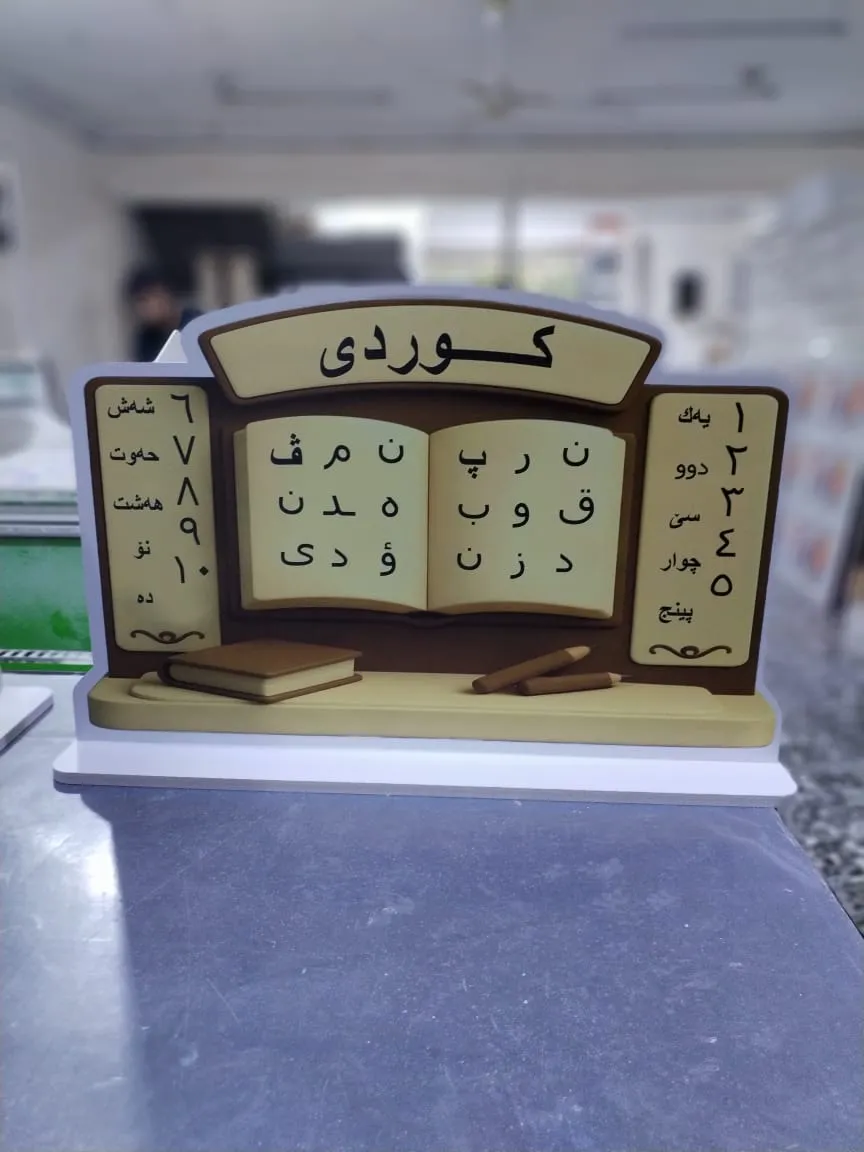 کـــوردی
١ یەك
٢ دوو
٣ سێ
٤ چوار
٥ پینج
ن ر پ
ق و ب
د ز ن
ن م ڤ
ه ـد ن
ؤ د ی
٦ شەش
٧ حەوت
٨ هەشت
٩ نۆ
١٠ دە